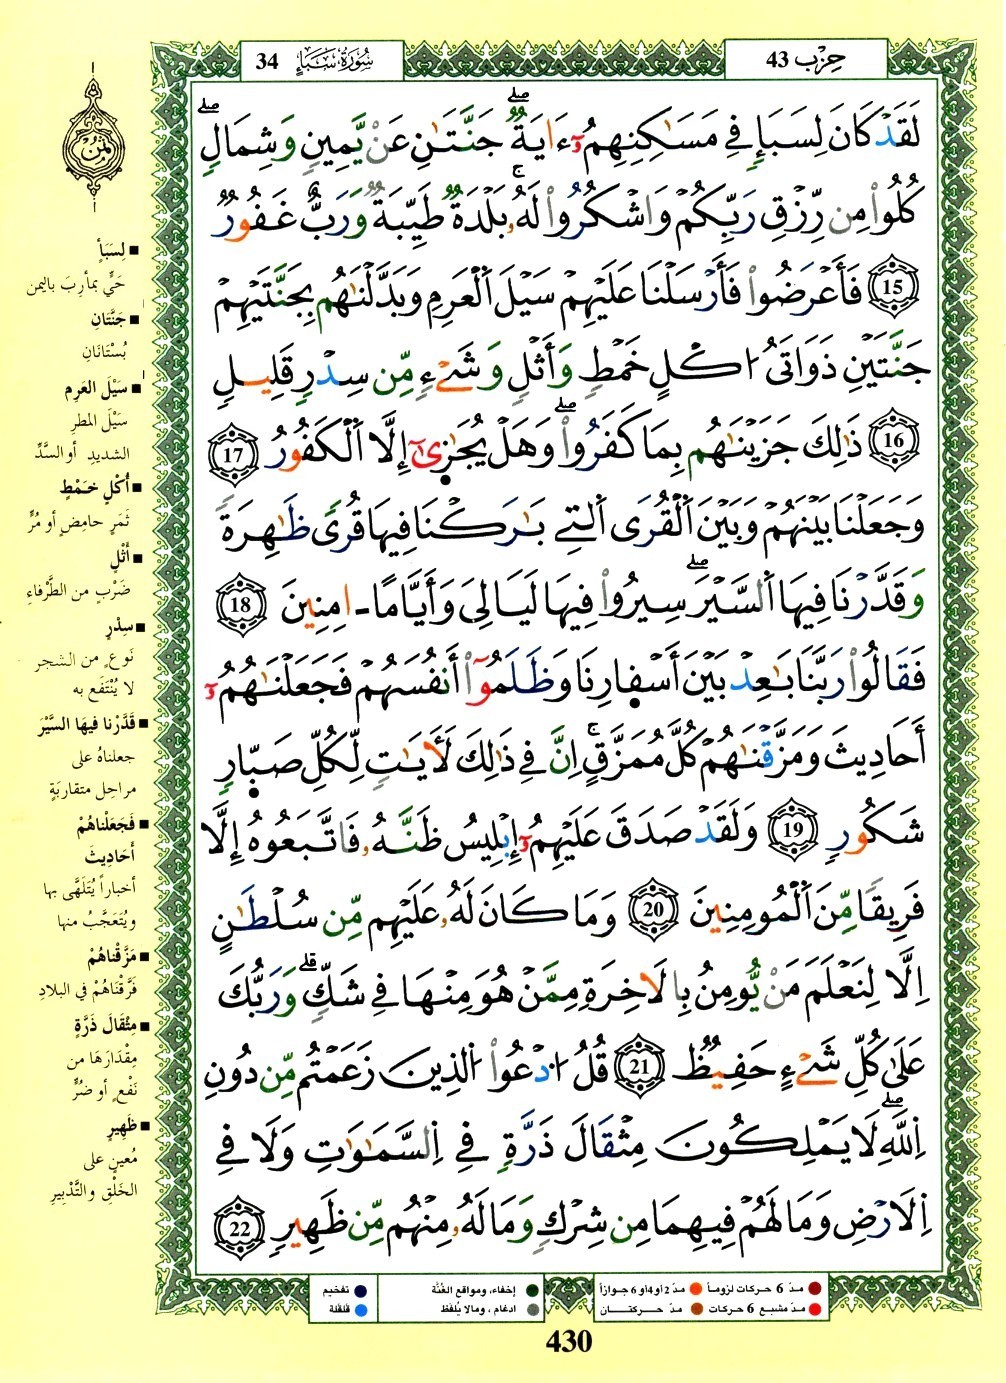 حِزْب 43
سُورَةُ سَبَإٍ 34
لَقَدْ كَانَ لِسَبَإٍ فِي مَسَٰكِنِهِمُۥٓ ءَايَةٞۖ جَنَّتَٰنِ عَنْ يَّمِينٖ وَشِمَالٖۖ
كُلُواْ مِن رِّزْقِ رَبِّكُمْ وَاشْكُرُواْ لَهُۥۚ بَلْدَةٞ طَيِّبَةٞ وَرَبٌّ غَفُورٞ
15 فَأَعْرَضُواْ فَأَرْسَلْنَا عَلَيْهِمْ سَيْلَ اَلْعَرِمِ وَبَدَّلْنَٰهُم بِجَنَّتَيْهِمْ
جَنَّتَيْنِ ذَوَاتَيُ ا۟كْلٍ خَمْطٖ وَأَثْلٖ وَشَےْءٖ مِّن سِدْرٖ قَلِيلٖ
16 ذَٰلِكَ جَزَيْنَٰهُم بِمَا كَفَرُواْۖ وَهَلْ يُجَٰزِىٰٓ إِلَّا اَلْكَفُورُ 17
وَجَعَلْنَا بَيْنَهُمْ وَبَيْنَ اَلْقُرَى اَلتِے بَٰرَكْنَا فِيهَا قُرىٗ ظَٰهِرَةٗ
وَقَدَّرْنَا فِيهَا اَلسَّيْرَۖ سِيرُواْ فِيهَا لَيَالِيَ وَأَيَّاماً ـ امِنِينَ 18
فَقَالُواْ رَبَّنَا بَٰعِدْ بَيْنَ أَسْفِارِنَا وَظَلَمُوٓاْ أَنفُسَهُمْ فَجَعَلْنَٰهُمُۥٓ
أَحَادِيثَ وَمَزَّقْنَٰهُمْ كُلَّ مُمَزَّقٍۚ اِنَّ فِي ذَٰلِكَ لَأٓيَٰتٖ لِّكُلِّ صَبّ۪ارٖ
شَكُورٖ 19 وَلَقَدْ صَدَقَ عَلَيْهِمُۥٓ إِبْلِيسُ ظَنَّهُۥ فَاتَّبَعُوهُ إِلَّا
فَرِيقاٗ مِّنَ اَلْمُومِنِينَ 20 وَمَا كَانَ لَهُۥ عَلَيْهِم مِّن سُلْطَٰنٍ
اِلَّا لِنَعْلَمَ مَنْ يُّومِنُ بِالَاخِرَةِ مِمَّنْ هُوَ مِنْهَا فِي شَكّٖۗ وَرَبُّكَ
عَلَىٰ كُلِّ شَےْءٍ حَفِيظٞ 21 قُلُ ا۟دْعُواْ اُلذِينَ زَعَمْتُم مِّن دُونِ
اِللَّهِۖ لَا يَمْلِكُونَ مِثْقَالَ ذَرَّةٖ فِي اِلسَّمَٰوَٰتِ وَلَا فِي
اِلَارْضِ وَمَا لَهُمْ فِيهِمَا مِن شِرْكٖ وَمَا لَهُۥ مِنْهُم مِّن ظَهِيرٖ 22
ثُمُن
■ لِسَبَإٍ
حَيٍّ بمأرِبَ باليمن
■ جَنَّتَانِ
بُسْتَانَانِ
■ سَيْلَ العَرِم
سَيْلَ المطرِ
الشديدِ أو السَّدِّ
■ أُكْلٍ خَمْطٍ
ثَمَرٍ حامِضٍ أو مُرٍّ
■ أَثْلٍ
ضَرْبٍ من الطَّرْفاءِ
■ سِدْرٍ
نَوعٍ من الشجر
لا يُنْتَفَع به
■ قَدَّرْنا فيها السَّيْرَ
جعلناهُ على
مراحِل متقاربَةٍ
■ فَجَعَلْناهُمْ
أحَادِيثَ
أخباراً يُتَلَهَّى بها
ويُتَعَجَّبُ منها
■ مَزَّقْناهُمْ
فَرَّقْناهُمْ في البلادِ
■ مِثْقَالَ ذَرَّةٍ
مِقْدَارَهَا من
نَفْعٍ أو ضُرٍّ
■ ظَهِيرٍ
مُعينٍ على
الخَلْقِ والتَّدْبِيرِ
مدّ 6 حركات لزوماً ● مدّ 2 أو 4 أو 6 جوازاً ● إخفاء، ومواقع الغُنَّة ● تفخيم
مدّ مشبع 6 حركات ● مدّ حركتان ● ادغام، ومالا يُلفظ ● قلقلة
430